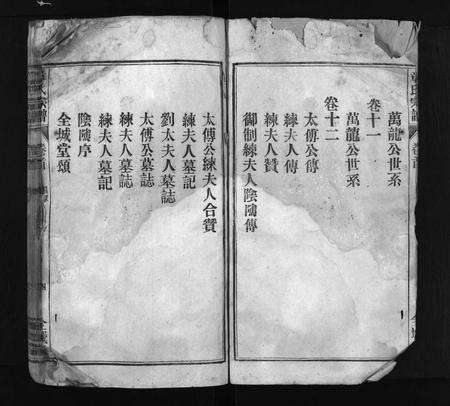 萬龍公世系
卷十一
萬龍公世系
卷十二
太傅公傳
練夫人傳
練夫人贊
御制練夫人陰隲傳
太傅公練夫人合贊
練夫人墓記
劉太夫人墓誌
太傅公墓誌
練夫人墓誌
練夫人墓記
陰隲序
全城堂頌
氏宗譜
卷首
四
全城